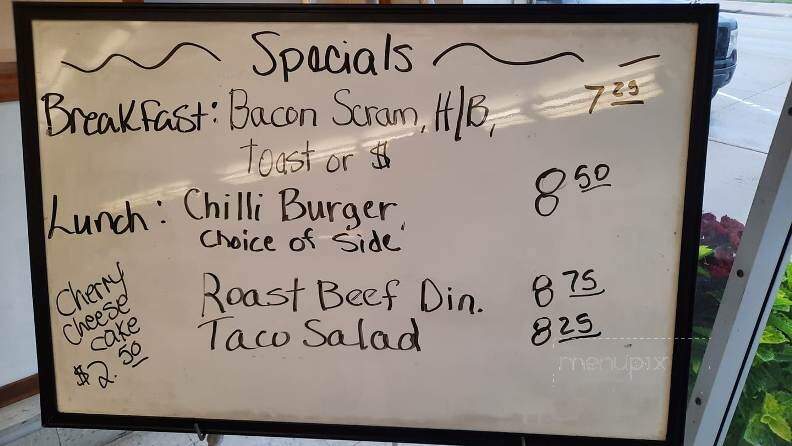 Specials
Breakfast: Bacon Scram, H/B, 7 25
Toast or $
Lunch: Chilli Burger, 8 50
choice of side
Roast Beef Din. 8 75
Taco Salad 8 25
Cherry
cheese
cake
$2.50
menupix